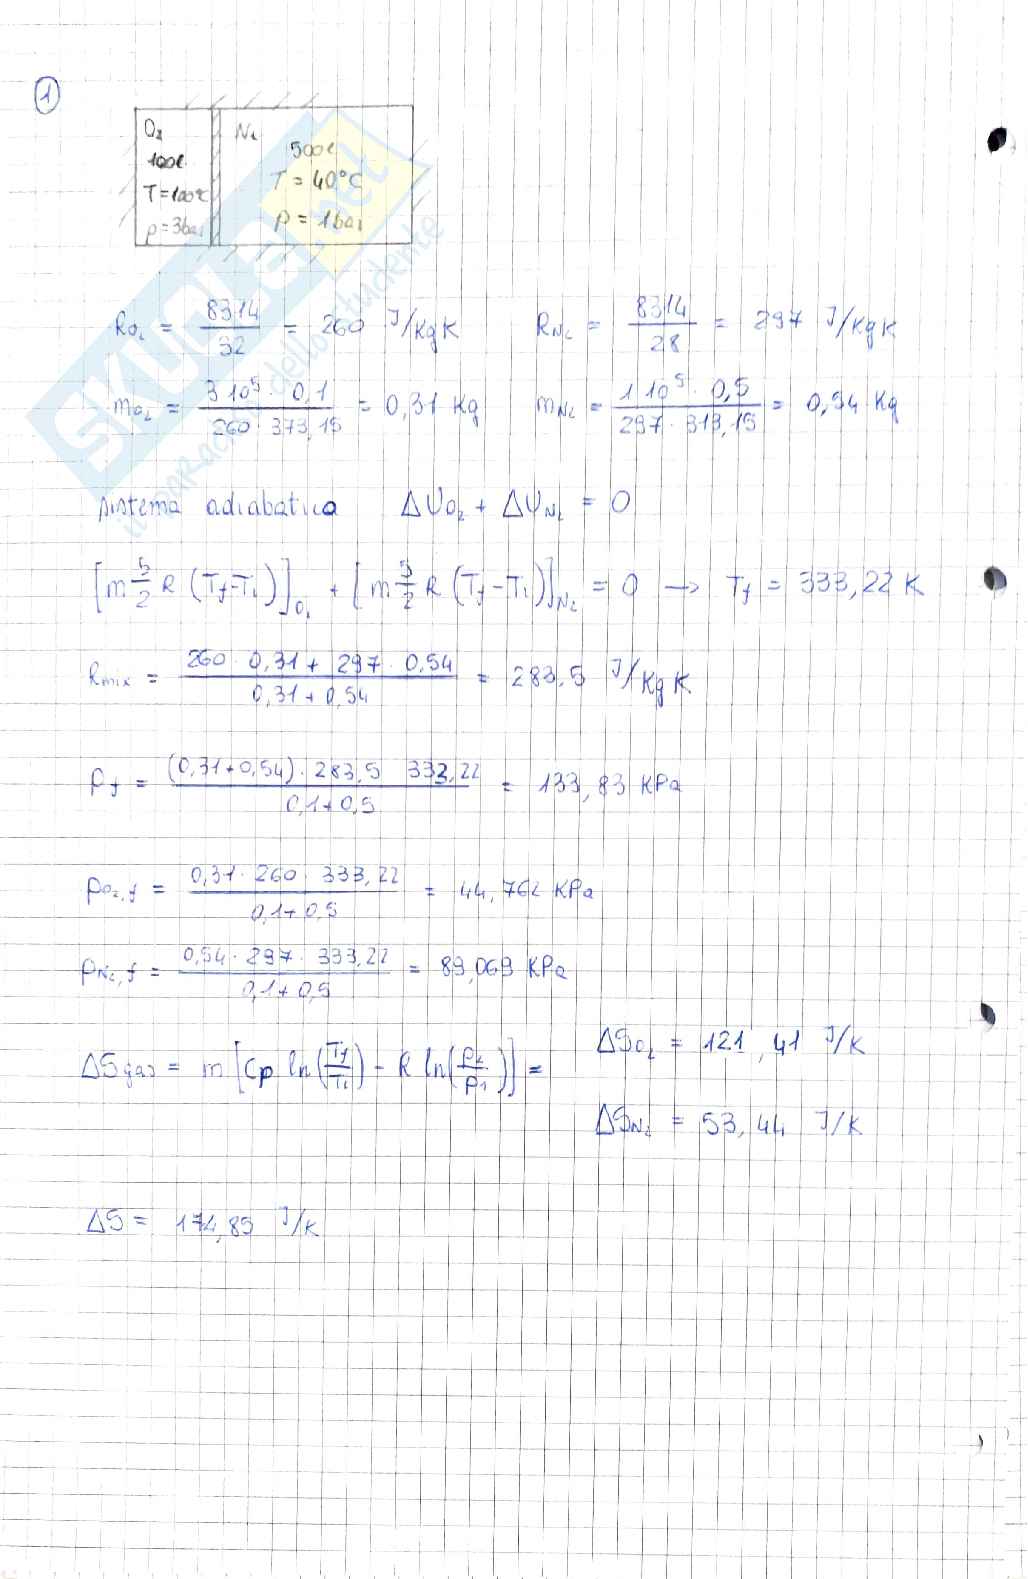 1
O₂
N₂
100l
500l
T = 100°C
T = 40°C
p = 3bar
p = 1bar
SKUOLA.net
imparac dello studente
R_O₂ = 8314/32 = 260 J/KgK
R_N₂ = 8314/28 = 297 J/KgK
m_O₂ = 3 10⁵ · 0,1 / 260 · 373,15 = 0,31 Kg
m_N₂ = 1 10⁵ · 0,5 / 297 · 313,15 = 0,54 Kg
Sistema adiabatico ΔU_O₂ + ΔU_N₂ = 0
[m 5/2 R (Tf-Ti)]_O₂ + [m 5/2 R (Tf-Ti)]_N₂ = 0 → Tf = 333,22 K
Rmix = 260 · 0,31 + 297 · 0,54 / 0,31 + 0,54 = 283,5 J/KgK
Pf = (0,31+0,54) · 283,5 333,22 / 0,1+0,5 = 133,83 KPa
p_O₂,f = 0,31 · 260 · 333,22 / 0,1+0,5 = 44,762 KPa
p_N₂,f = 0,54 · 297 · 333,22 / 0,1+0,5 = 89,069 KPa
ΔSgas = m [Cp ln(Tf/Ti) - R ln(p₂/p₁)] =
ΔS_O₂ = 121,41 J/K
ΔS_N₂ = 53,44 J/K
ΔS = 174,85 J/K